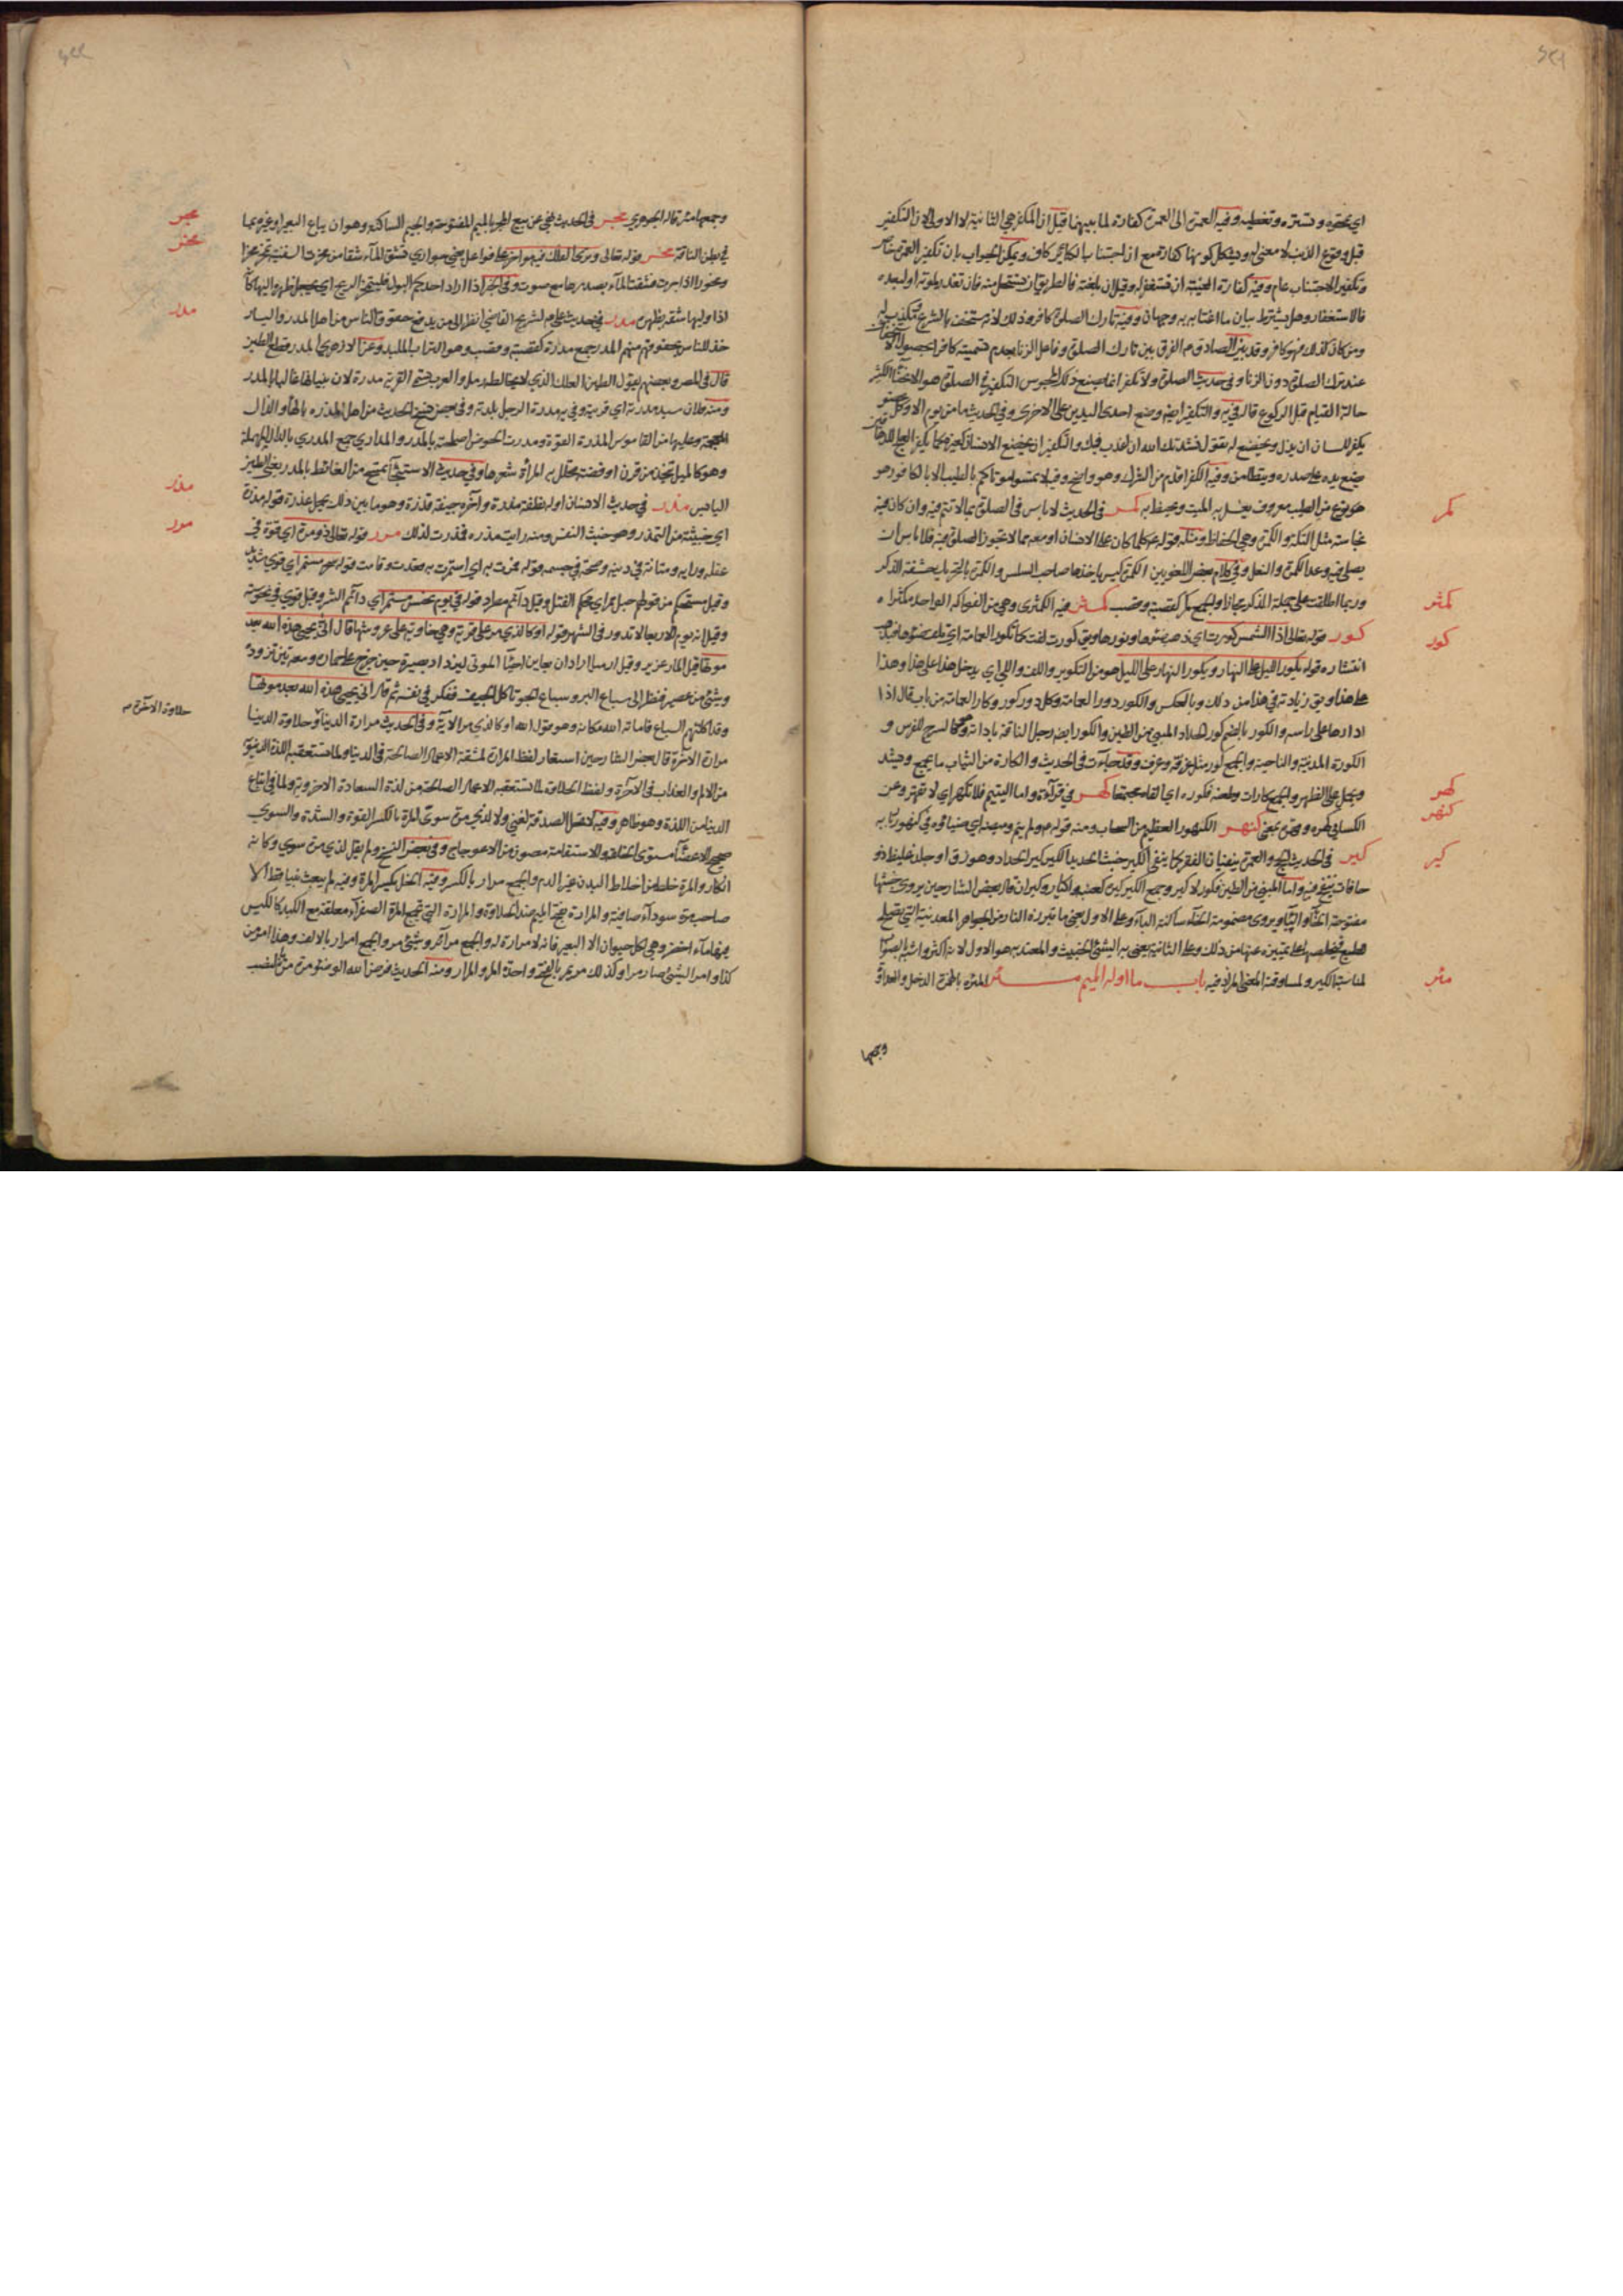 اي تمحوه وتستره وتغطيه وفيه العمرة الى العمرة كفارة لما بينهما قيل ان المكفر هي الثانية لا الاولى لان التكفير
قبل وقوع الذنب لا معنى له ويشكل كونها كفارة مع ان اجتناب الكبائر كاف ويمكن الجواب بان تكفير العمرة خاص
وتكفير الاجتناب عام وفيه كفارة الغيبة ان تستغفر له وقيل ان بلغته فالطريق ان تستحل منه فان تعذر بموته او لبعده
فالاستغفار وهل يشترط بيان ما اغتابه به وجهان وفيه تارك الصلوة كافر وذلك لانه مستخف بالشرع مكذب له
ومن كان كذلك فهو كافر وقد بين الصادق م الفرق بين تارك الصلوة وفاعل الزنا بعدم تسمية كافرا بحصول الاستخفاف
عند ترك الصلوة دون الزنا وفي حديث الصلوة ولا تكفر انما يصنع ذلك المجوس التكفير في الصلوة هو الانحناء الكثير
حالة القيام قبل الركوع قاله في يه والتكفير ايضا وضع احدى اليدين على الاخرى وفي الحديث ما من يوم الا وكل عضو
يكفر للسان اي يذل ويخضع له يقول نشدتك الله ان نعذب فيك والتكفير ان يخضع الانسان لغيره كما يكفر العلج للدهقان
يضع يده على صدره ويتطامن وفيه الكفر اقدم من الشرك وهو واضح وفيه لا تمسوا موتاكم بالطيب الا بالكافور هو
هو نوع من الطيب معروف يغسل به الميت ويحنط به كمر في الحديث لا باس في الصلوة بما لا تتم فيه وان كان فيه
نجاسة مثل التكة والكمرة وهي الحفاظ ومثله قوله ع كلما كان على الانسان او معه مما لا تجوز الصلوة فيه فلا باس ان
يصلى فيه وعد الكمرة والنعل وفي كلام بعض اللغويين الكمرة كيس ياخذها صاحب السلس والكمرة بالتحريك حشفة الذكر
وربما اطلقت على جملة الذكر مجازا والجمع كمر كقصبة وقصب كمثر فيه الكمثرى وهي من الفواكه الواحدة كمثراه
كور قوله تعالى اذا الشمس كورت اي ذهب ضوءها ونورها ويق كورت لفت كما تكور العمامة اي يلف ضوءها فيذهب
انتشاره قوله يكور الليل على النهار ويكور النهار على الليل هو من التكوير واللف واللي اي يدخل هذا على هذا وهذا
على هذا ويق زيادته في هذا من ذلك وبالعكس والكور دور العمامة وكل دور كور وكار العمامة من باب قال اذا
ادارها على راسه والكور بالضم كور الحداد المبني من الطين والكور ايضا رحل الناقة باداته وهو كالسرج للفرس و
الكورة المدينة والناحية والجمع كور مثل غرفة وغرف وقد جاءت في الحديث والكارة من الثياب ما يجمع ويشد
ويحمل على الظهر والجمع كارات وطعنه فكوره اي القاه مجتمعا كهر في قرآءة واما اليتيم فلا تكهر اي لا تقهر وعن
الكسائي كهره وقهره بمعنى كنهر الكنهور العظيم من السحاب ومنه قوله م ولم ينم وميضه اي ضياؤه في كنهور ربابه
كير في الحديث الحج والعمرة ينفيان الفقر كما ينفي الكير خبث الحديد الكير كير الحداد وهو زق او جلد غليظ ذو
حافات ينفخ فيه واما المبني من الطين فكور لا كير وجمع الكير كيرة كعنبة واكيار وكيران قال بعض الشارحين يروى خبثها
مفتوحة الخاء والباء ويروى مضمومة الخاء ساكنة الباء وعلى الاول يعني ما تبرزه النار من الجواهر المعدنية التي تصلح
للطبع فيخلصها بما يميزه عنها من ذلك وعلى الثانية يعني به الشيء الخبيث والمعتد به هو الاول لانه اكثر واشبه بالصواب
لمناسبة الكير ولمساوقته المعنى المراد فيه باب ما اوله الميم مئر المئرة بالهمزة الذحل والعداوة
وجمعها
كمر
كمثر
كور
كهر
كنهر
كير
مئر
وجمعها مئر قاله الجوهري مجر في الحديث نهى عن بيع المجر بالميم المفتوحة والجيم الساكنة وهو ان يباع البعير او غيره بما
في بطن الناقة مخر قوله تعالى وترى الفلك فيه مواخر على فواعل يعني جواري تشق المآء شقا من مخرت السفينة تمخر مخرا
ومخورا اذا جرت فشقت المآء بصدرها مع صوت وفي الخبر اذا اراد احدكم البول فليتمخر الريح اي يجعل ظهره اليها كانه
اذا وليها شقها بظهره مدر في حديث علي م لشريح القاضي انظر الى من يدفع حقوق الناس من اهل المدر واليسار
خذ للناس بحقوقهم منهم المدر جمع مدرة كقصبة وقصب وهو التراب الملبد وعن الازهري المدر قطع الطين
قال في المصر وبعضهم يقول الطين العلك الذي لا يخالطه رمل والعرب تسمي القرية مدرة لان بنيانها غالبا بالمدر
ومنه فلان سيد مدرته اي قريته وفي يه مدرة الرجل بلدته وفي بعض نسخ الحديث من اهل المذره بالهآء والذال
المعجمة وعليها من القاموس المذرة القوة ومدرت الحوض اصلحته بالمدر والمداري جمع المدري بالدال المهملة
وهو كالميل يتخذ من قرن او فضة يخلل به المرأة شعرها وفي حديث الاستنجاء تمسح من الغائط بالمدر يعني الطين
اليابس مذر في حديث الانسان اوله نطفة مذرة وآخره جيفة قذرة وهو ما بين ذلك يحمل عذرة قوله مذرة
اي خبيثة من التمذر وهو خبث النفس ومنه رايت مذره فمذرت لذلك مرر قوله تعالى ذو مرة اي قوة في
عقله ورايه ومتانة في دينه وصحة في جسمه قوله فمرت به اي استمرت به وقعدت وقامت قوله سحر مستمر اي قوي شديد
وقيل مستحكم من قولهم حبل ممر اي محكم الفتل وقيل دائم مطرد قوله في يوم نحس مستمر اي دائم الشر وقيل قوي في نحوسته
وقيل انه يوم الاربعا لا تدور في الشهر قوله او كالذي مر على قرية وهي خاوية على عروشها قال انى يحيي هذه الله بعد
موتها قيل المار عزير وقيل ارميا اراد ان يعاين احيآء الموتى ليزداد بصيرة حين خرج على حماره ومعه تين تزوده
وشئ من عصير فنظر الى سباع البر وسباع الجو تاكل الجيف ففكر في نفسه ثم قال انى يحيي هذه الله بعد موتها
وقد اكلتهم السباع فاماته الله مكانه وهو قول الله او كالذي مر الآية وفي الحديث مرارة الدنيا وحلاوة الدنيا
مرارة الآخرة قال بعض الشارحين استعار لفظ المرارة لمشقة الاعمال الصالحة في الدنيا ولما تستعقبه اللذة الدنيوية
من الالم والعذاب في الآخرة ولفظ الحلاوة لما تستعقبه الاعمال الصالحة من لذة السعادة الاخروية ولما في اتباع
الدنيا من اللذة وهو ظاهر وفيه لا تصل الصدقة لغني ولا لذي مرة سوي المرة بالكسر القوة والشدة والسوي
صحيح الاعضآء مستوى الخلقة والاستقامة مصون من الاعوجاج وفي بعض النسخ ولم يقل لذي مرة سوي وكانه
انكار والمرة خلط من اخلاط البدن غير الدم والجمع مرار بالكسر وفيه الخل يكسر المرة وفيه لم يبعث نبيا قط الا
صاحب مرة سودآء صافية والمرارة بفتح الميم ضد الحلاوة والمرارة التي تجمع المرة الصفرآء معلقة مع الكبد كالكيس
فيها مآء اخضر وهي لكل حيوان الا البعير فانه لا مرارة له والجمع مرآئر وشئ مر والجمع امرار بالالف وهذا امر من
كذا وامر الشئ صار مرا وكذلك مر يمر بالفتح واحدة المر والمرار ومنه الحديث فرض الله الوضوء مرة مرة نصب
مجر
مخر
مدر
مذر
مرر
حلاوة الآخرة م